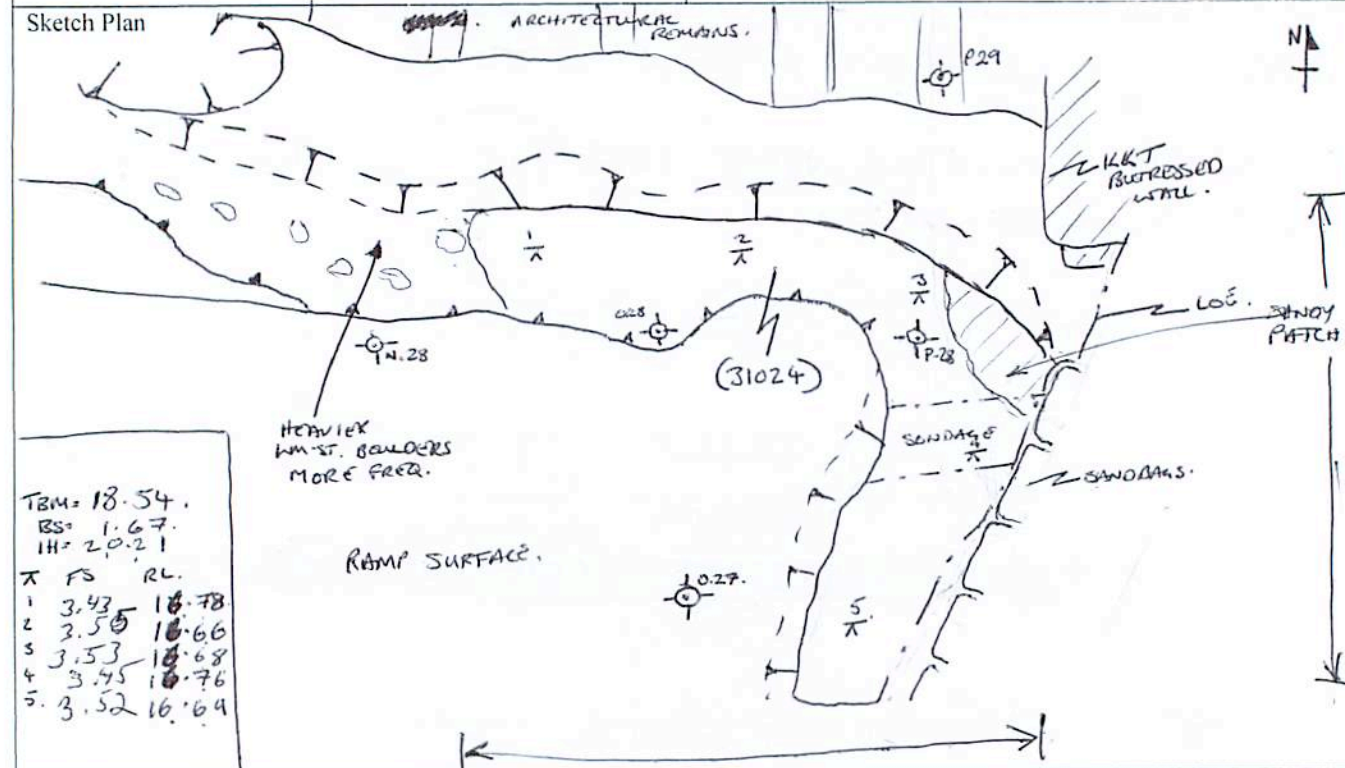 Sketch Plan
ARCHITECTURAL
REMAINS.
N
P.29
KKT
BUTRESSED
WALL.
LOE.
SANDY
PATCH
1
2
3
028
N.28
P.28
(31024)
HEAVIER
LM-ST. BOULDERS
MORE FREQ.
SONDAGE
4
SANDBAGS.
RAMP SURFACE.
O.27.
5
TBM= 18.54.
BS= 1.67.
IH= 20.21
⊼ FS RL.
1 3.43 16.78
2 3.55 16.66
3 3.53 16.68
4 3.45 16.76
5. 3.52 16.69